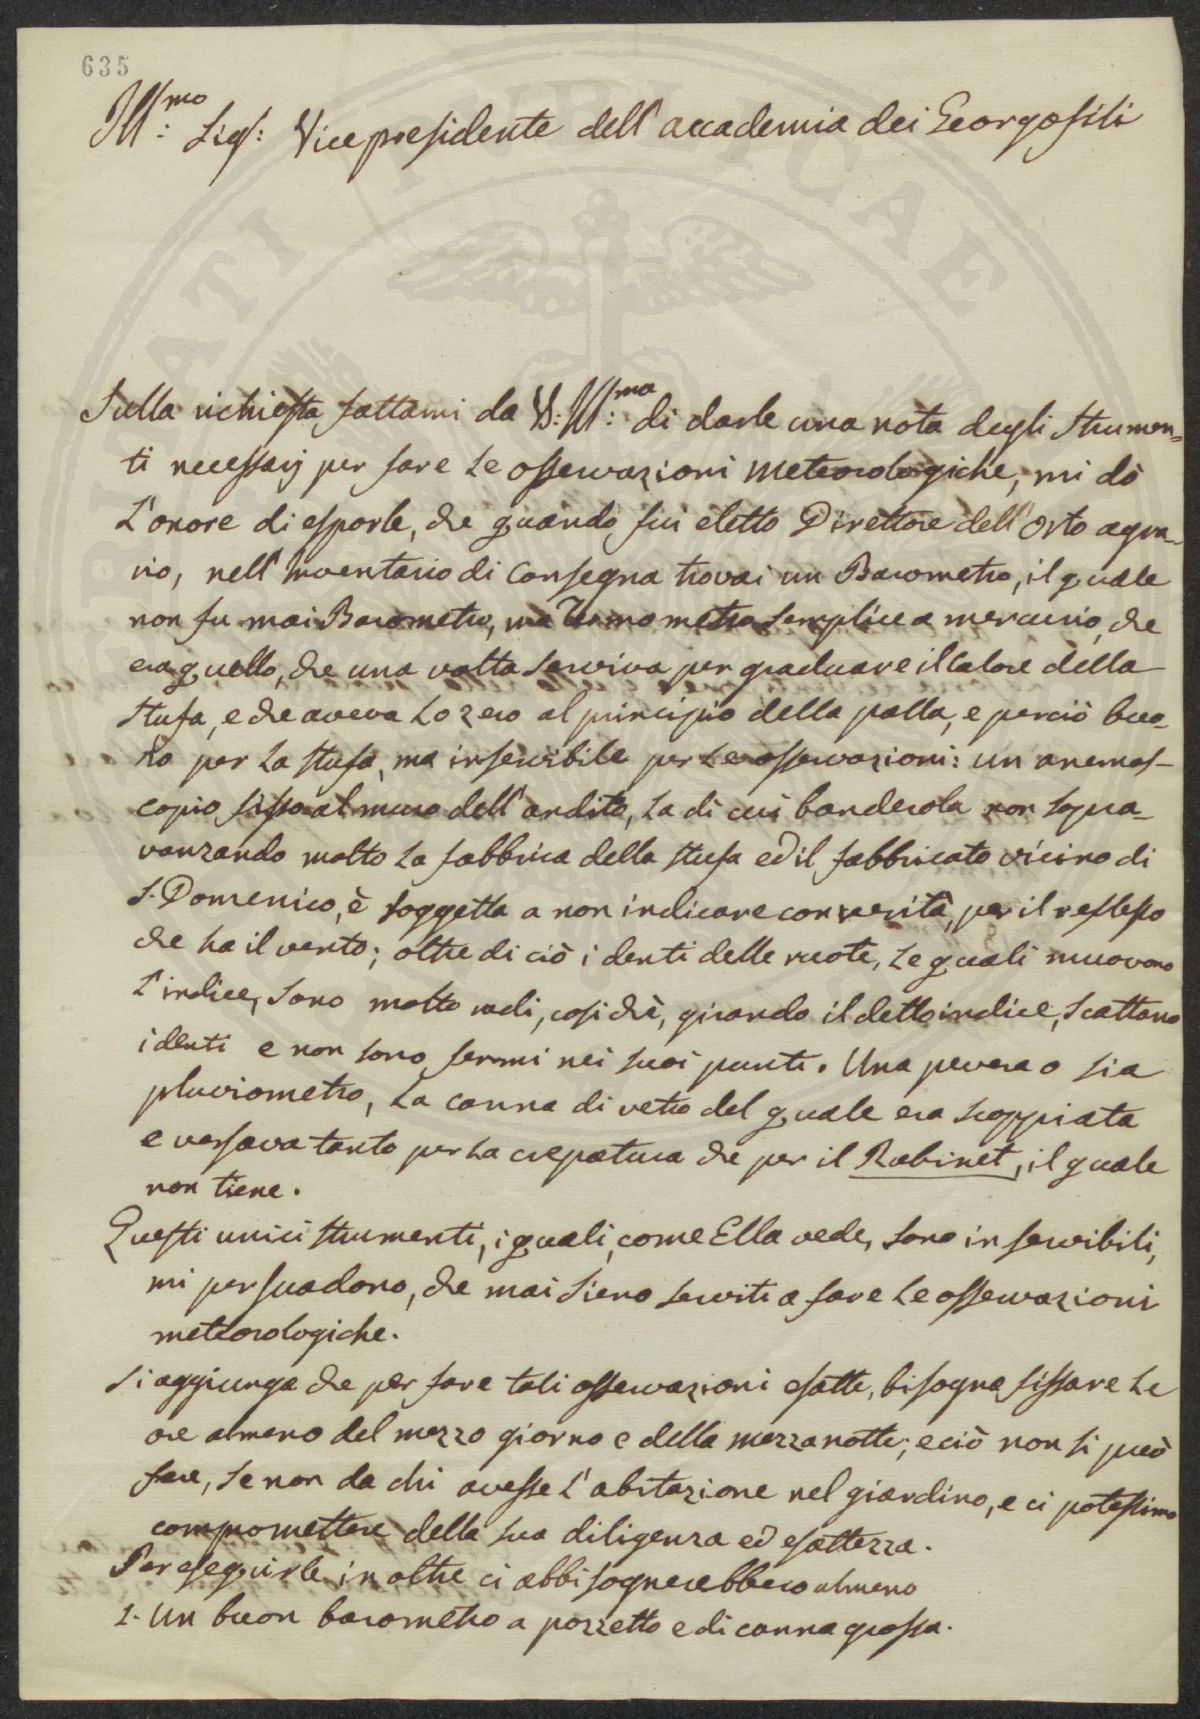 635
Ill:mo Sig: Vicepresidente dell'accademia dei Georgofili
Sulla richiesta fattami da V: Ill:ma di darle una nota degli strumen-
ti necessarj per fare le osservazioni meteorologiche, mi dò
l'onore di esporle, che quando fui eletto Direttore dell'orto agra-
rio, nell'inventario di consegna trovai un Barometro, il quale
non fu mai Barometro, ma Termometro semplice a mercurio, che
era quello, che una volta serviva per graduare il calore della
stufa, e che aveva lo zero al principio della palla, e perciò buo-
no per la stufa, ma inservibile per le osservazioni: un anemos-
copio fisso al muro dell'andito, la di cui banderola non sopra-
vanzando molto la fabbrica della stufa ed il fabbricato vicino di
S. Domenico, è soggetta a non indicare con verità, per il reflesso
che ha il vento; oltre di ciò i denti delle ruote, le quali muovono
l'indice, sono molto radi, cosi chè, girando il detto indice, scattano
i denti e non sono fermi nei suoi punti. Una pevera o sia
pluviometro, la canna di vetro del quale era scoppiata
e versava tanto per la crepatura che per il Robinet, il quale
non tiene.
Questi unici strumenti, i quali, come Ella vede, sono inservibili,
mi persuadono, che mai sieno serviti a fare le osservazioni
meteorologiche.
Si aggiunga che per fare tali osservazioni esatte, bisogna fissare le
ore almeno del mezzo giorno e della mezzanotte; e ciò non si può
fare, se non da chi avesse l'abitazione nel giardino, e ci potessimo
compromettere della sua diligenza ed esattezza.
Per eseguirle inoltre ci abbisognerebbero almeno
1. Un buon barometro a pozzetto e di canna grossa.